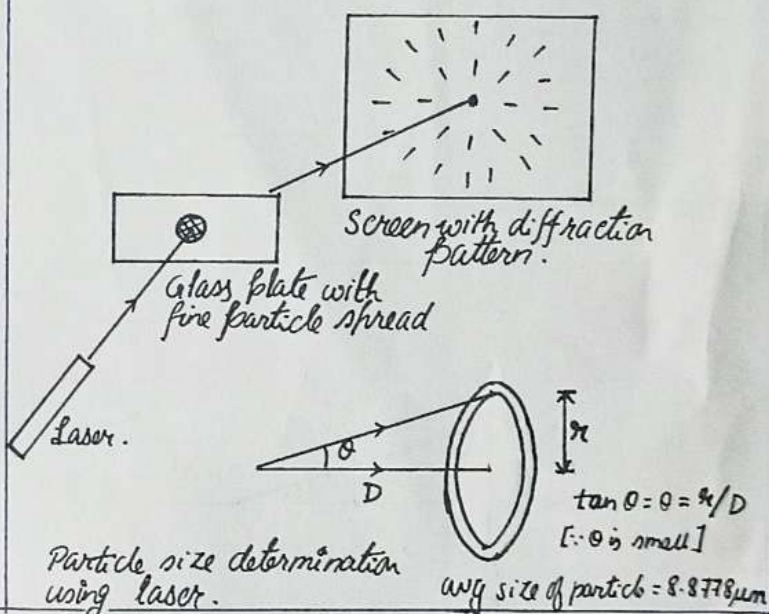 Screen with diffraction
pattern.
Glass plate with
fine particle spread
Laser.
θ
D
r
tan θ = θ = r/D
[∵ θ is small]
Particle size determination
using laser.
avg size of particle = 8.8778μm